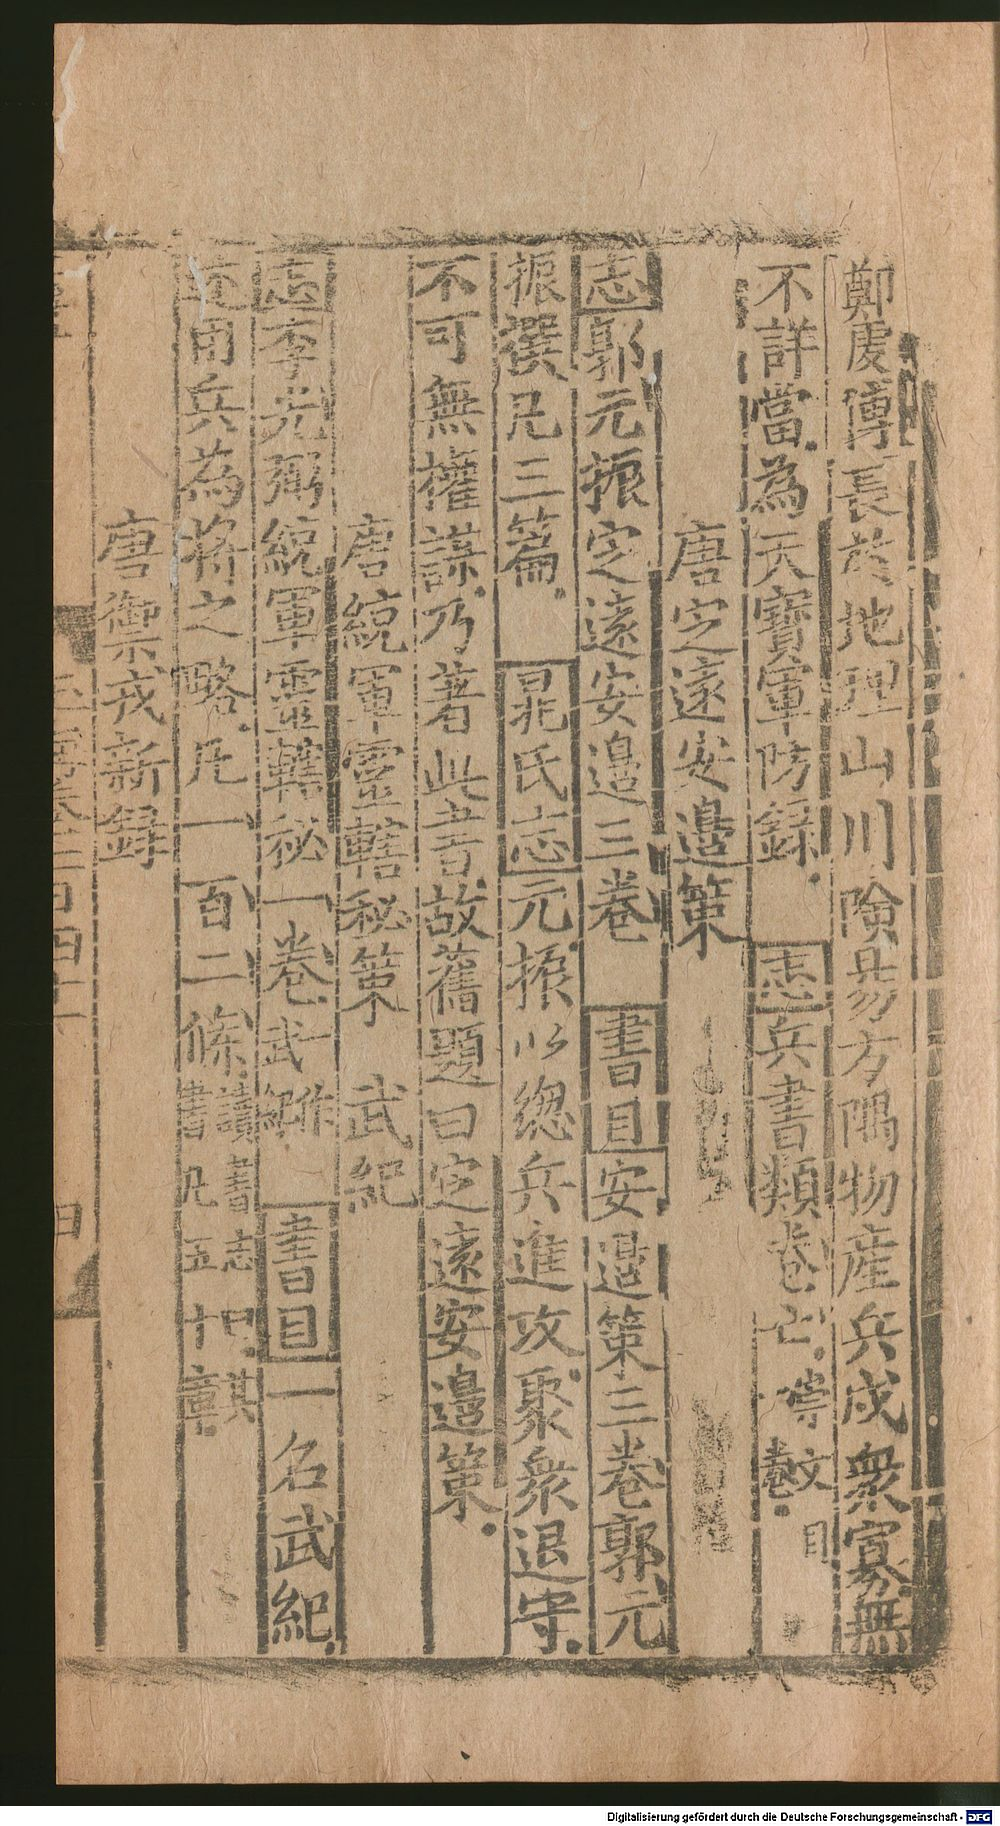 鄭虔傳長於地理山川險易方隅物產兵戍衆寡無
不詳當為天寶軍防錄志兵書類卷亡崇文目
卷
唐定遠安邊策
志郭元振定遠安邊三卷書目安邊策三卷郭元
振撰凡三篇晁氏志元振以總兵進攻聚衆退守
不可無權謀乃著此書故舊題曰定遠安邊策
唐統軍靈轄秘策 武紀
志李光弼統軍靈轄祕一卷一作武紀書目一名武紀
述用兵為將之略凡一百二條讀書志
書凡五十章
唐禦戎新錄
Digitalisierung gefördert durch die Deutsche Forschungsgemeinschaft - DFG